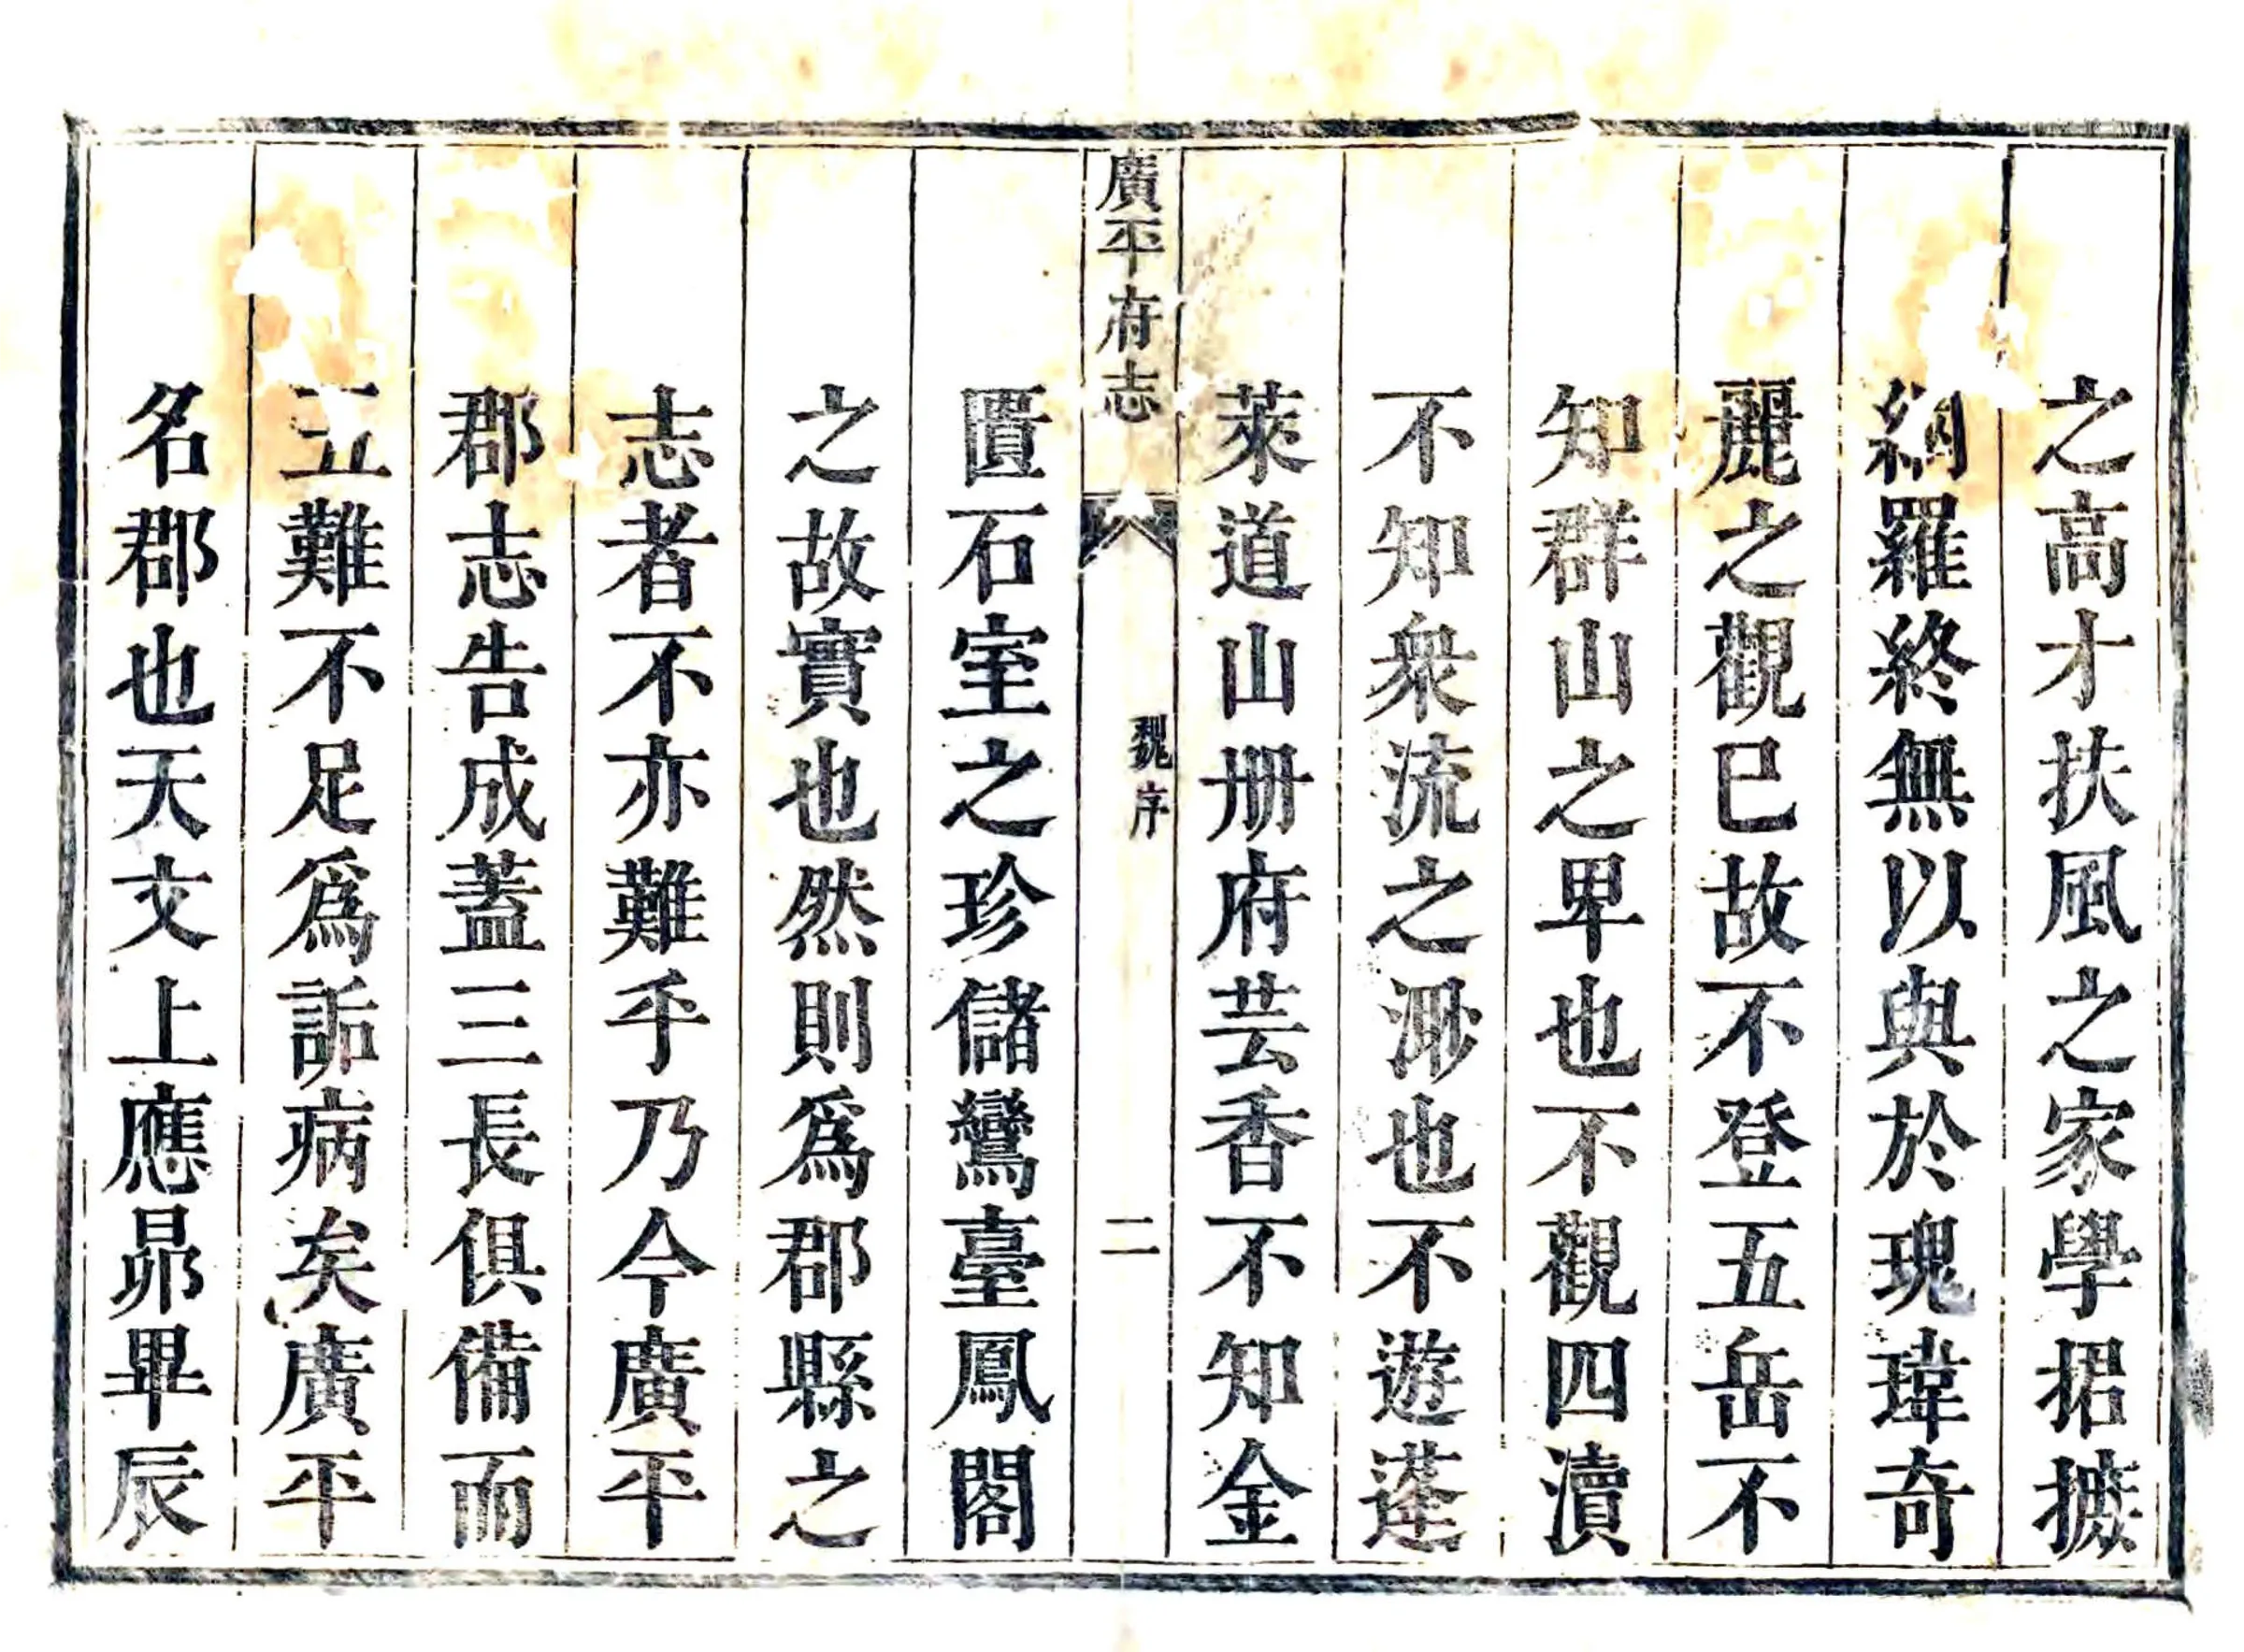 之高才扶風之家學捃摭
網羅終無以與於瑰瑋奇
麗之觀巳故不登五岳不
知群山之卑也不觀四瀆
不知衆流之渺也不遊蓬
萊道山册府芸香不知金
廣平府志
魏序
二
匱石室之珍儲鸞臺鳳閣
之故實也然則爲郡縣之
志者不亦難乎乃今廣平
郡志告成蓋三長俱備而
五難不足爲詬病矣廣平
名郡也天文上應昴畢辰